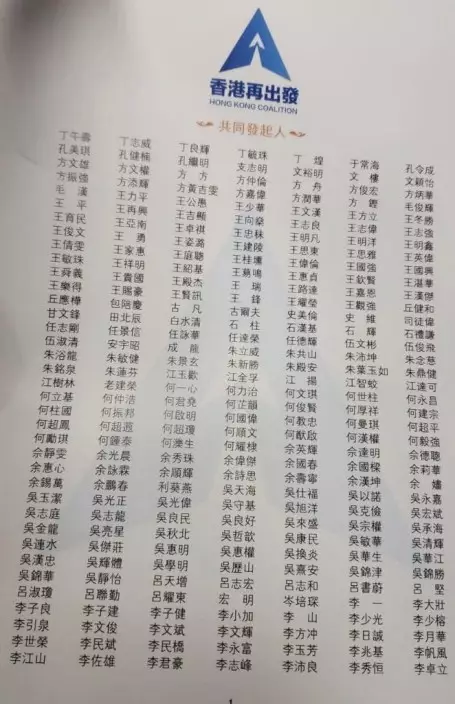 香港再出發
HONG KONG COALITION
共同發起人
丁午壽 丁志威 丁良輝 丁毓珠 丁 煌 于常海 孔令成
孔美琪 孔健楠 孔繼明 支志明 文裕明 文 樓 文穎怡
方文雄 方文權 方 方 方仲倫 方 舟 方俊宏 方炳華
方振強 方添輝 方黃吉雯 方嘉偉 方潤華 方 鏗 毛俊輝
毛 漢 王力平 王公愚 王少華 王文漢 王方立 王冬勝
王 平 王再興 王吉顯 王向燊 王志良 王志偉 王志強
王育民 王亞南 王卓祺 王忠秣 王明凡 王明洋 王明鑫
王俊文 王 勇 王姿潞 王建陵 王思東 王思雅 王英偉
王倩雯 王家惠 王庭聰 王桂壎 王偉倫 王國強 王國興
王敏珠 王祥明 王紹基 王葛鳴 王惠貞 王欽賢 王湛華
王舜義 王貴國 王殿杰 王 瑞 王路達 王嘉恩 王漢傑
王樂得 王賜豪 王賢訊 王 鋒 王耀榮 王觀強 丘健和
丘應樺 包陪慶 古 凡 古爾夫 史美倫 史 維 司徒偉
甘文鋒 田北辰 白水清 石 柱 石漢基 石 輝 石禮謙
任志剛 任景信 任詠華 任達榮 任德輝 伍文彬 伍俊飛
伍淑清 安宇昭 成 龍 朱立威 朱共山 朱沛坤 朱念慈
朱浴龍 朱敏健 朱景玄 朱新勝 朱殿安 朱葉玉如 朱鼎健
朱銘泉 朱蓮芬 江玉歡 江全孚 江 揚 江智蛟 江達可
江樹林 老建榮 何一心 何力治 何文琪 何世柱 何永昌
何立基 何仲浩 何君堯 何芷韻 何俊賢 何厚祥 何建宗
何柱國 何振邦 何啟明 何國偉 何教忠 何曼琪 何超平
何超鳳 何超蕸 何超瓊 何順文 何猷啟 何漢權 何毅強
何勵琪 何鍾泰 何濼生 何耀棣 佘英輝 佘達明 佘德聰
佘靜雯 余光晨 余秀珠 余偉傑 余國春 余國樑 余莉華
余惠心 余詠霖 余順輝 余詩思 余壽寧 余漢坤 余 嬙
余錫萬 余鵬春 利葵燕 吳天海 吳仕福 吳以諾 吳永嘉
吳玉潔 吳光正 吳光偉 吳守基 吳旭洋 吳克儉 吳宏斌
吳志庭 吳志龍 吳良民 吳良好 吳來盛 吳宗權 吳承海
吳金龍 吳亮星 吳秋北 吳哲歆 吳康民 吳敏華 吳清輝
吳連水 吳傑莊 吳惠明 吳惠權 吳換炎 吳華生 吳華江
吳漢忠 吳輝體 吳學明 吳歷山 吳熹安 吳錦津 吳錦勝
吳錦華 吳靜怡 呂天增 呂志宏 呂志和 呂書蔚 呂 堅
呂淑瓊 呂聯勤 呂耀東 宏 明 岑培琛 李 一 李大壯
李子良 李子建 李子健 李小加 李 山 李少光 李少榕
李引泉 李文俊 李文斌 李文輝 李方冲 李日誠 李月華
李世榮 李民斌 李民橋 李永富 李玉芳 李兆基 李帆風
李江山 李佐雄 李君豪 李志峰 李沛良 李秀恒 李卓立
1